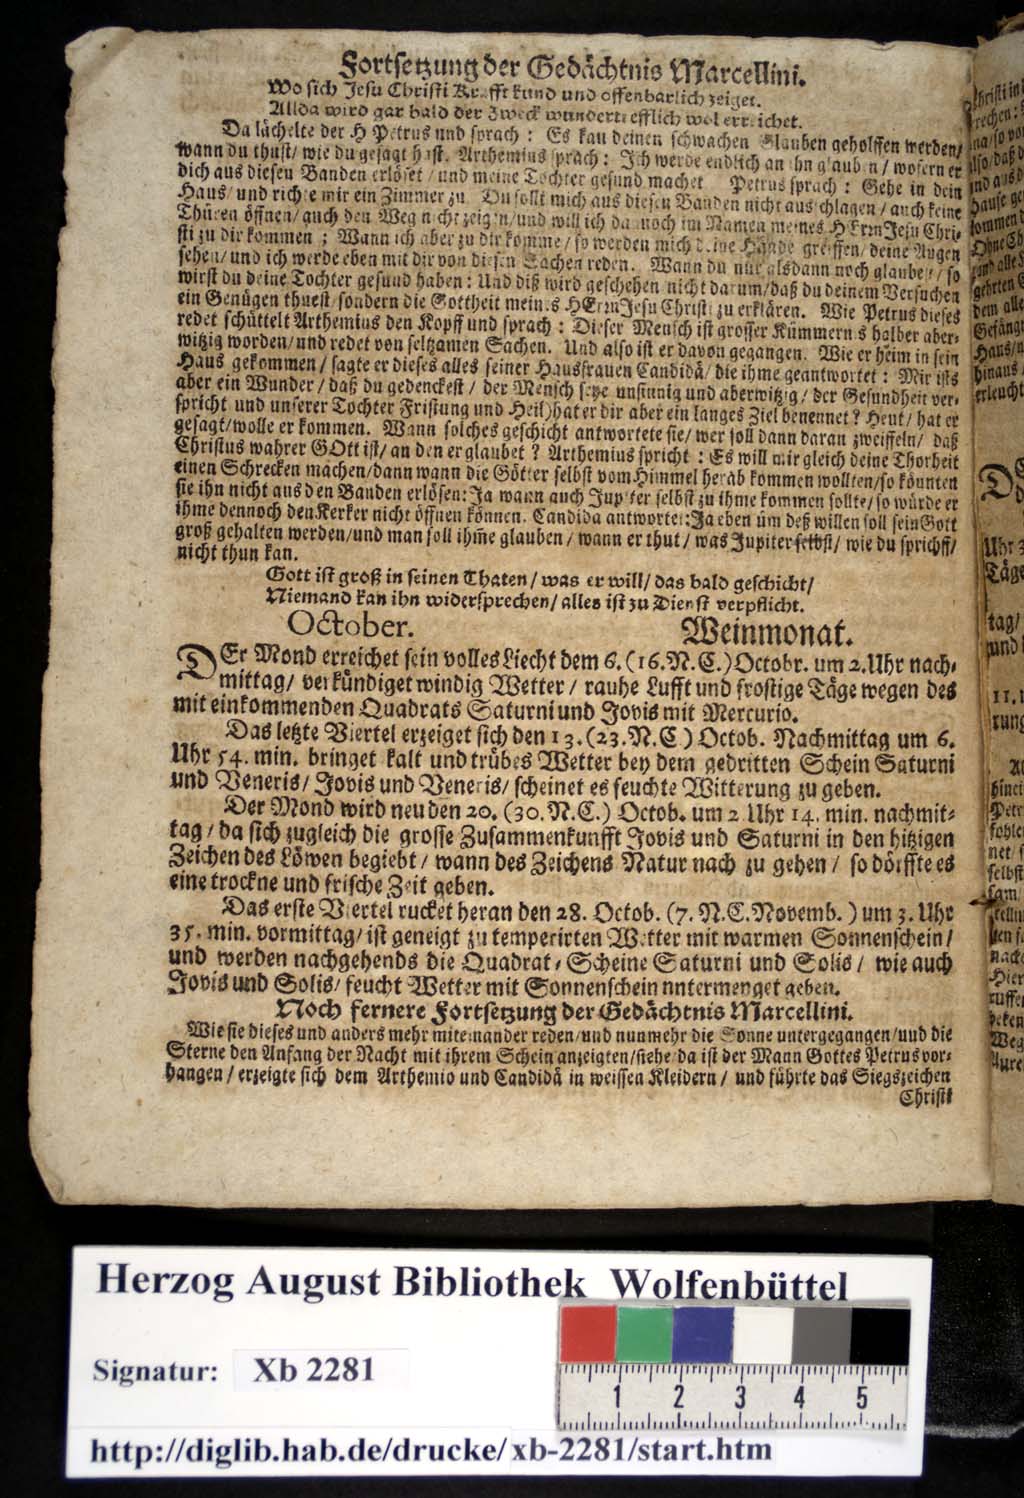 Fortsetzung der Gedächtnis Marcellini.
Wo sich Jesu Christi Krafft kund und offenbarlich zeiget.
Allda wird gar bald der Zweck wundertrefflich wol erreichet.
Da lächelte der H Petrus und sprach : Es kan deinen schwachen Glauben geholffen werden/
wann du thust/ wie du gesagt hast. Arthemius sprach: Ich werde endlich an ihn glauben/ wofern er
dich aus diesen Banden erlöset / und meine Tochter gesund machet Petrus sprach : Gehe in dein
Haus/ und richte mir ein Zimmer zu Du sollt mich aus diesen Banden nicht ausschlagen / auch keine
Thüren öffnen/ auch den Weg nicht zeigen/und will ich dannoch im Namen meines HErrn Jesu Chri-
sti zu dir kommen ; Wann ich aber zu dir komme/ so werden mich deine Hände greiffen/ deine Augen
sehen/ und ich werde eben mit dir von diesen Sachen reden. Wann du nur alsdann noch glaubest/ so
wirst du deine Tochter gesund haben: Und diß wird geschehen nicht darum/daß du deinem Versuchen
ein Genügen thuest/ sondern die Gottheit meines HErrn Jesu Christi zu erklären. Wie Petrus dieses
redet schüttelt Arthemius den Kopff und sprach : Dieser Mensch ist grosser Kümmernis halber aber-
witzig worden/ und redet von seltzamen Sachen. Und also ist er davon gegangen. Wie er heim in sein
Haus gekommen / sagte er dieses alles seiner Hausfrauen Candidä/ die ihme geantwortet : Mir ists
aber ein Wunder / daß du gedenckest / der Mensch seye unsinnig und aberwitzig / der Gesundheit ver-
spricht und unserer Tochter Fristung und Heil) hat er dir aber ein langes Ziel benennet ? Heut / hat er
gesagt/ wolle er kommen. Wann solches geschicht antwortete sie/ wer soll dann daran zweiffeln/ daß
Christus wahrer GOtt ist/ an den er glaubet ? Arthemius spricht : Es will mir gleich deine Thorheit
einen Schrecken machen/ dann wann die Götter selbst vom Himmel herab kommen wollten/ so könnten
sie ihn nicht aus den Banden erlösen: Ja wann auch Jupiter selbst zu ihme kommen sollte/ so würde er
ihme dennoch den Kerker nicht öffnen können. Candida antwortet: Ja eben üm deß willen soll sein Gott
groß gehalten werden/und man soll ihme glauben / wann er thut / was Jupiter selbst/ wie du sprichst/
nicht thun kan.
Gott ist groß in seinen Thaten / was er will/ das bald geschicht/
Niemand kan ihn widersprechen/ alles ist zu Dienst verpflicht.
October. Weinmonat.
DEr Mond erreichet sein volles Liecht dem 6. (16. N. C.) Octobr. um 2. Uhr nach-
mittag/ verkündiget windig Wetter / rauhe Lufft und frostige Täge wegen des
mit einkommenden Quadrats Saturni und Jovis mit Mercurio.
Das letzte Viertel erzeiget sich den 13. (23. N. C ) Octob. Nachmittag um 6.
Uhr 54. min. bringet kalt und trübes Wetter bey dem gedritten Schein Saturni
und Veneris/ Jovis und Veneris/ scheinet es feuchte Witterung zu geben.
Der Mond wird neu den 20. (30. N. C.) Octob. um 2 Uhr 14. min. nachmit-
tag / da sich zugleich die grosse Zusammenkunfft Jovis und Saturni in den hitzigen
Zeichen des Löwen begiebt / wann des Zeichens Natur nach zu gehen / so dörffte es
eine trockne und frische Zeit geben.
Das erste Viertel rucket heran den 28. Octob. (7. N. C. Novemb. ) um 3. Uhr
35. min. vormittag/ ist geneigt zu temperirten Wetter mit warmen Sonnenschein /
und werden nachgehends die Quadrat-Scheine Saturni und Solis / wie auch
Jovis und Solis/ feucht Wetter mit Sonnenschein nntermenget geben.
Noch fernere Fortsetzung der Gedächtnis Marcellini.
Wie sie dieses und anders mehr miteinander reden/ und nunmehr die Sonne untergegangen/ und die
Sterne den Anfang der Nacht mit ihrem Schein anzeigten/ siehe/ da ist der Mann Gottes Petrus vor-
hangen / erzeigte sich dem Arthemio und Candidä in weissen Kleidern / und führte das Siegszeichen
Christi
Herzog August Bibliothek Wolfenbüttel
Signatur: Xb 2281
1 2 3 4 5
http://diglib.hab.de/drucke/xb-2281/start.htm